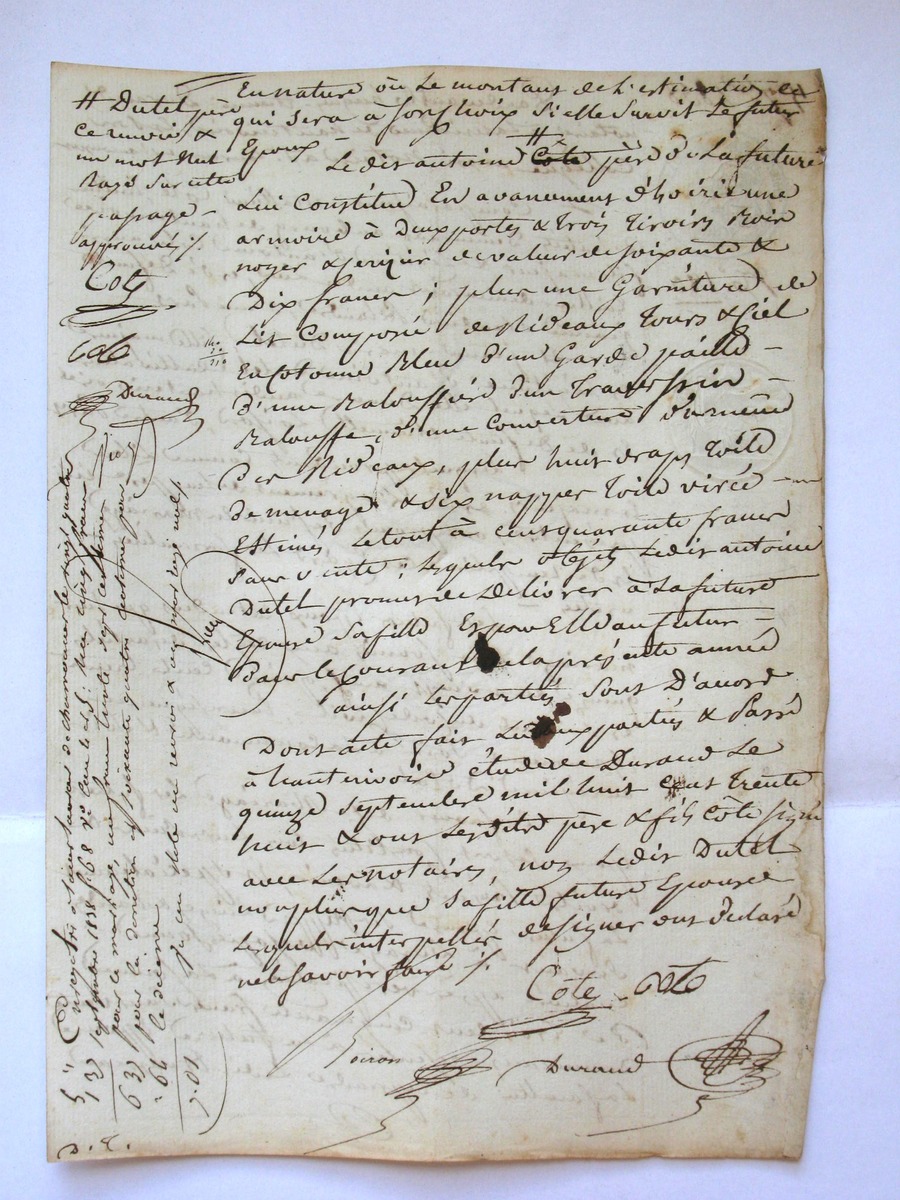 En nature ou Le montant de L'estimation
qui sera à son choix Si elle Survit Le futur
Epoux –
Ledit antoine # Côte père de La future
Lui Constitue En avancement d'hoirie une
armoire à Deux portes & trois tiroirs Bois
noyer & cerizier de valeur de soixante &
Dix francs ; plus une Garniture de
Lit Composée de Rideaux tours & Ciel
En Cotonne Bleu d'un Garde paille –
D'une Baloussiére d'un traverssin –
Balouffe, d'une couverture
Des Rideaux, plus huit draps toile
de menage & six nappes toile virée –
Estimés Le tout à cent quarante francs
Sans vente ; lesquels objets Ledit antoine
Dutel promet de Delivrer à La future
Epouse Sa fille Et pour Elle au futur –
Dans le courant de la présente année
ainsi Les parties Sont D'acord
Dont acte fait Lu aux parties & Passé
à hauterivoire étude de Durand Le
quinze Septembre mil huit Cent trente
huit & ont Lesdits père & fils Côte signé
avec Les notaires, non Ledit Dutel
non plus que Sa fille future Epouse
Lesquels interpellés de signer ont déclaré
ne le Savoir faire ./.
Cote Cote
Durand
# Dutel père
ce renvoi, &
un mot Nul
Rayé Sur cette
passage –
approuvés ./.
Cote
Cote
Durand
Enregistré à Saint laurent de chamousset le vingt quatre
septembre 1838 f° 68 v°
pour le mariage, un franc trente sept centimes
pour la donation
le décime
5 "
1 37
6 37
" 64
7.01
D. T.